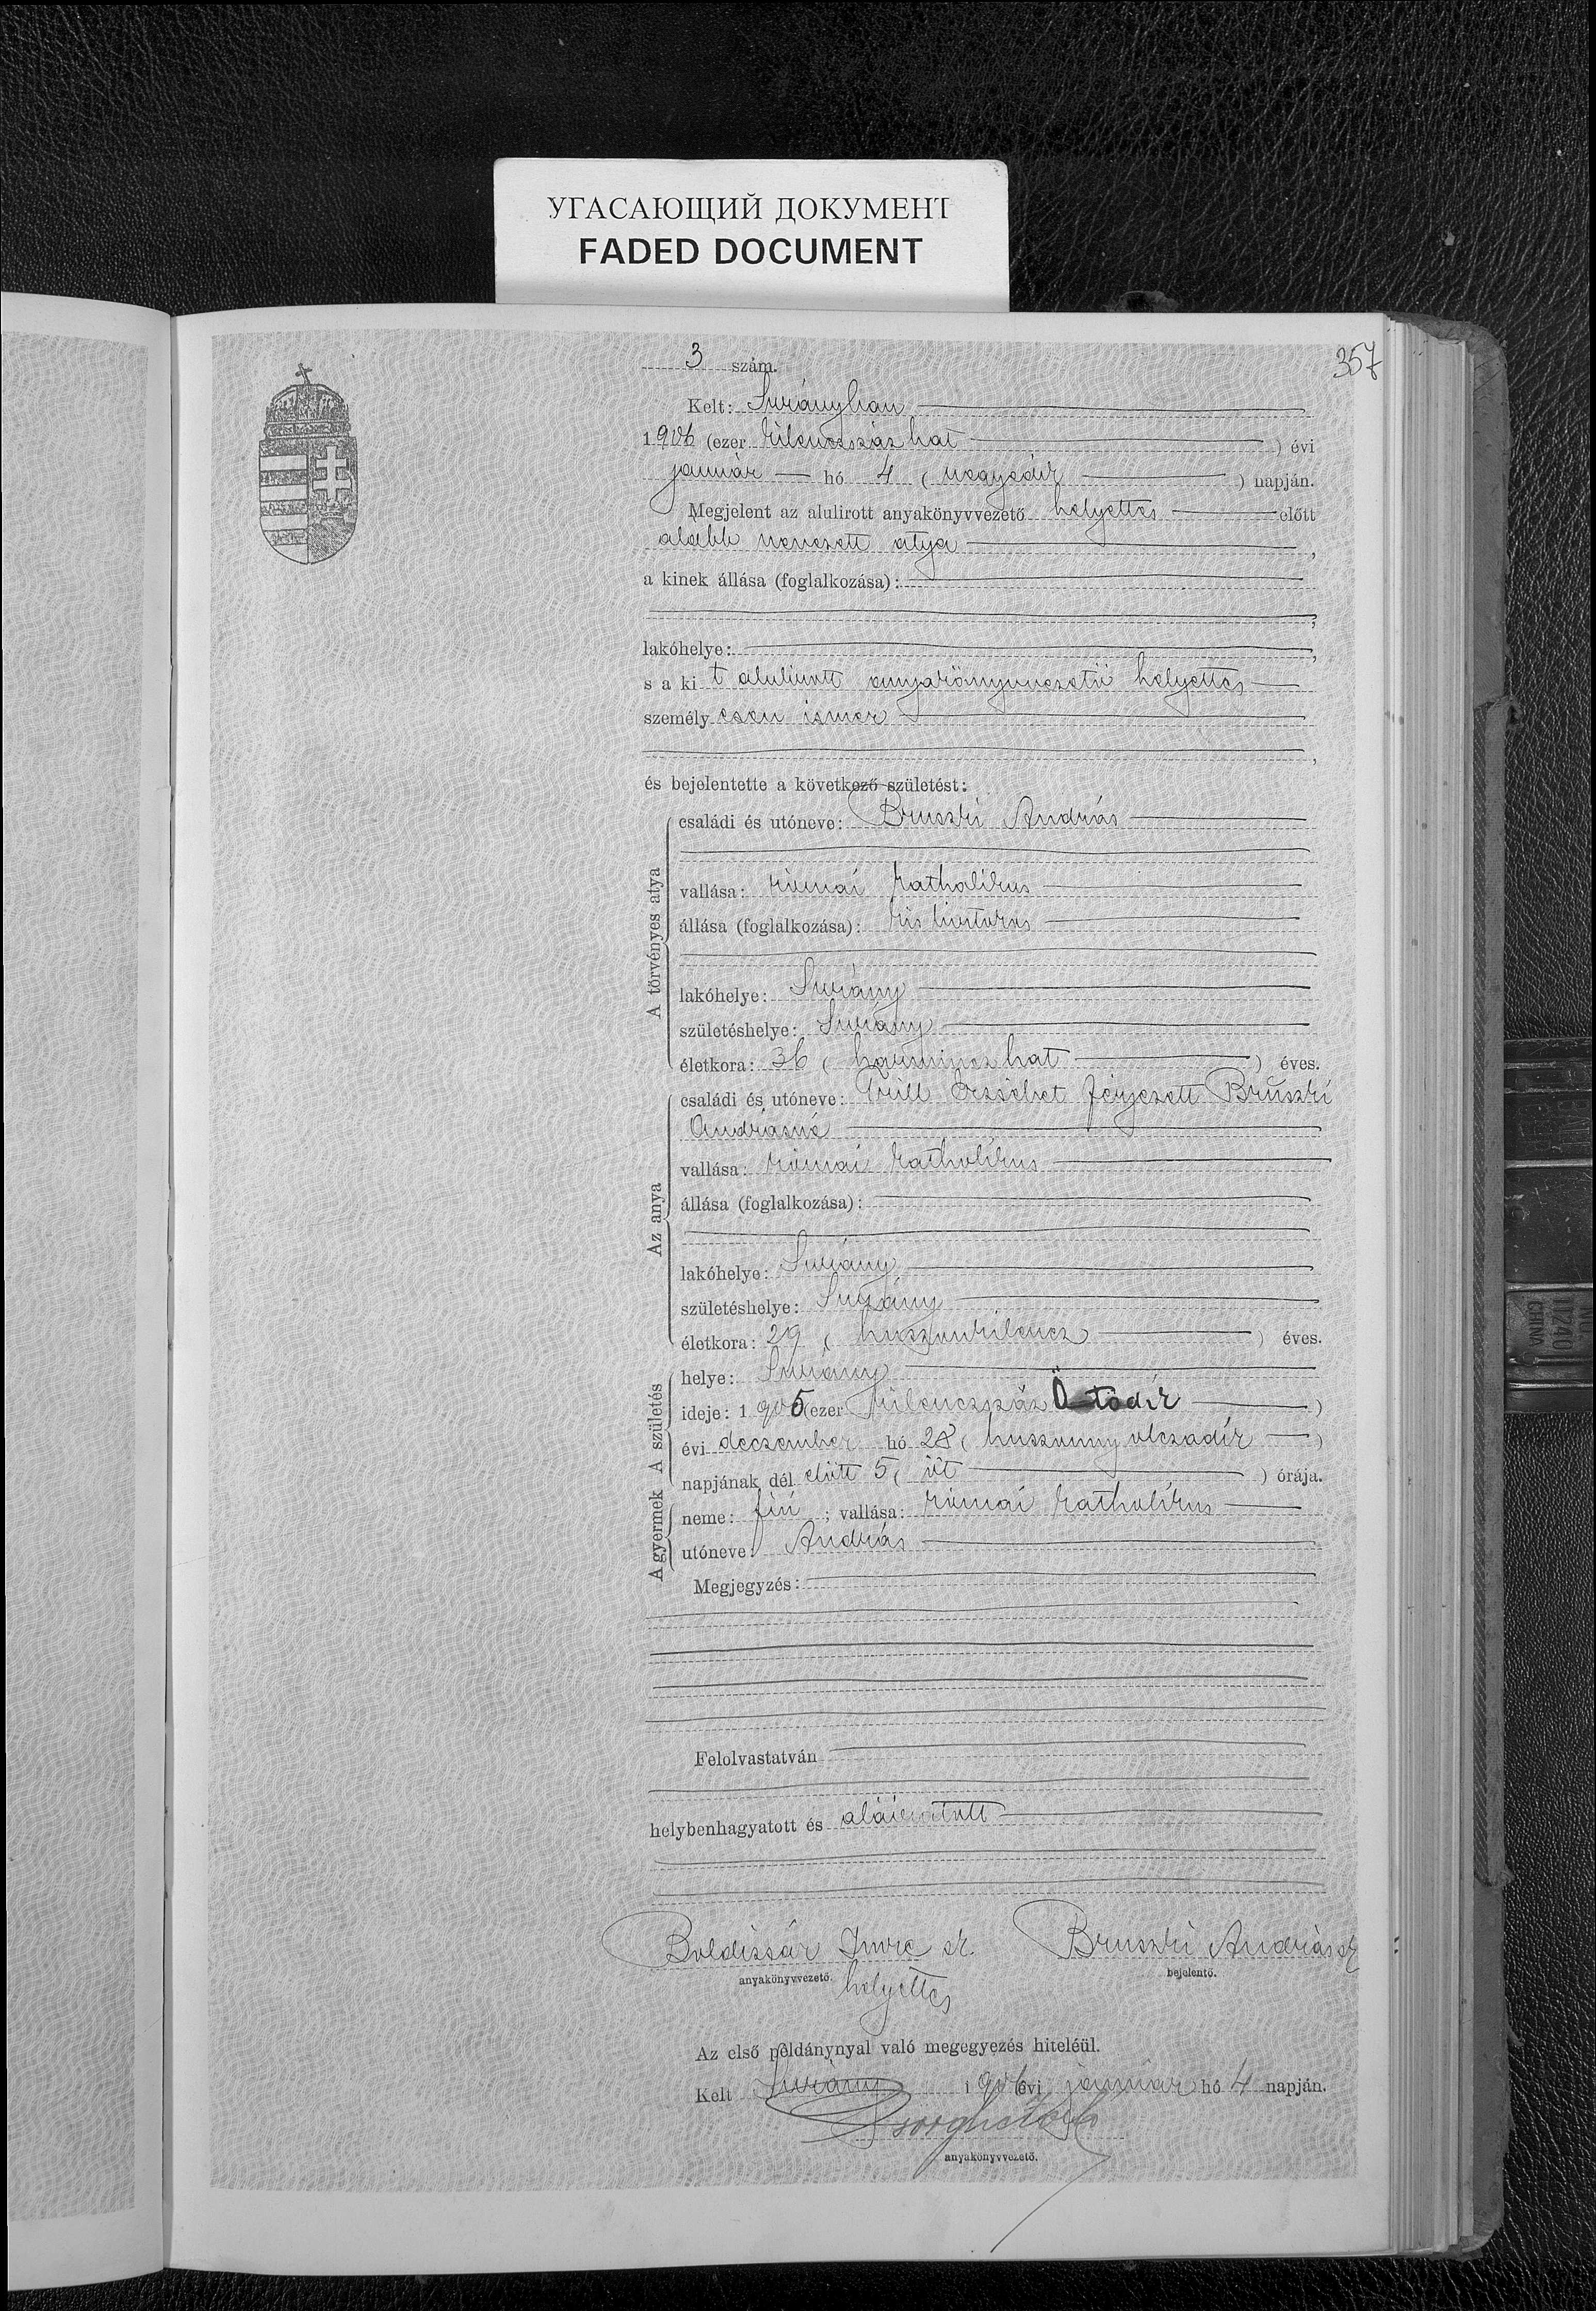 УГАСАЮЩИЙ ДОКУМЕНТ
FADED DOCUMENT
357
3 szám.
Kelt: Surányban
1906 (ezer kilenczszáz hat ) évi
január hó 4 ( negyedik ) napján.
Megjelent az alulirott anyakönyvvezető helyettes előtt
alább nevezett atya ,
a kinek állása (foglalkozása):
lakóhelye: ,
s a ki t alulirott anyakönyvvezető helyettes
személy esen ismer
és bejelentette a következő születést:
A törvényes atya
családi és utóneve: Bruszki András
vallása: római katholikus
állása (foglalkozása): kis birtokos
lakóhelye: Surány
születéshelye: Surány
életkora: 36 ( harmincz hat ) éves.
Az anya
családi és utóneve: Trill Erzsébet férjezett Bruszki
Andrásné
vallása: római katholikus
állása (foglalkozása):
lakóhelye: Surány
születéshelye: Surány
életkora: 29 ( huszonkilencz ) éves.
A születés
helye: Surány
ideje: 1905 (ezer kilenczszáz Ötödik )
évi deczember hó 28 ( huszonnyolczadik )
napjának dél előtt 5 ( öt ) órája.
A gyermek
neme: fiú ; vallása: római katholikus
utóneve: András
Megjegyzés:
Felolvastatván
helybenhagyatott és aláiratott
Boldizsár Imre sk. Bruszki András sk
anyakönyvvezető. helyettes bejelentő.
Az első példánynyal való megegyezés hiteléül.
Kelt Surány 1906 évi január hó 4 napján.
anyakönyvvezető.
11240
CHINA